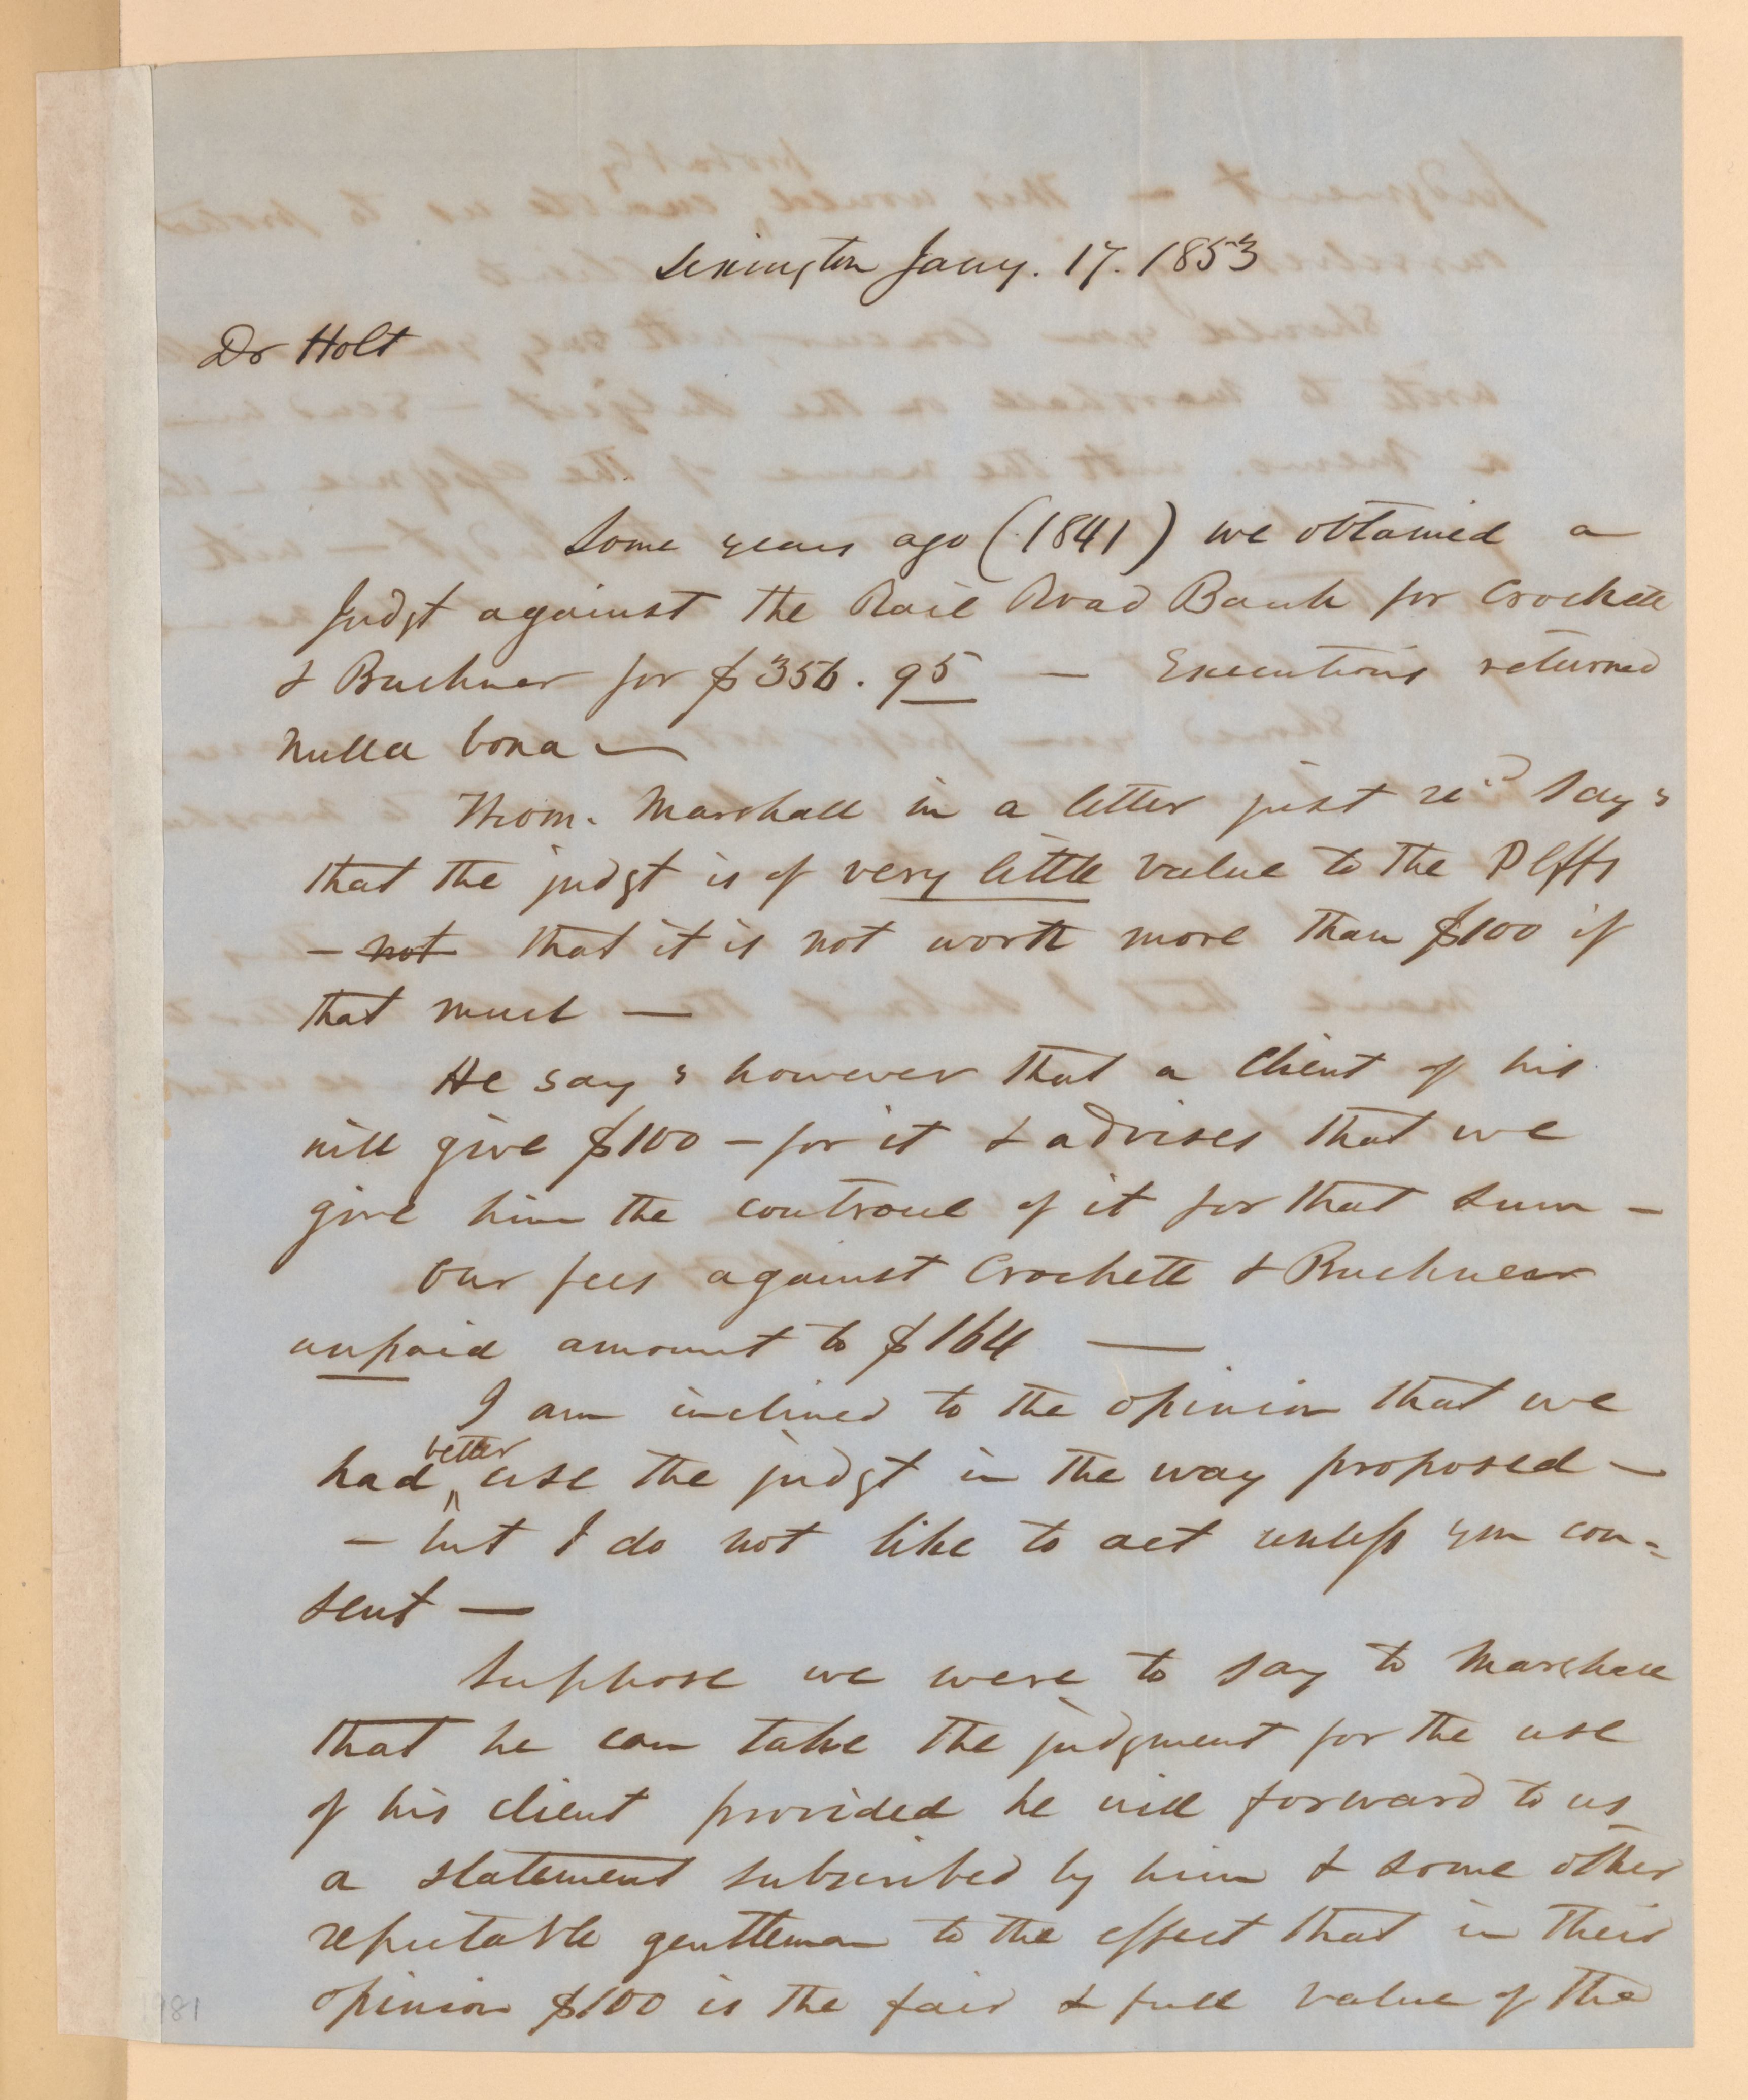 Lexington Jany. 17. 1853
Dr Holt
Some years ago (1841) we obtained a
Judgt against the Rail Road Bank for Crockett
& Buckner for $356.95 — Executions returned
nulla bona —
Thom. Marshall in a letter just recd says
that the judgt is of very little value to the Plffs
— not that it is not worth more than $100 if
that much —
He says however that a client of his
will give $100 — for it & advises that we
give him the controul of it for that sum —
Our fees against Crockett & Buckner
unpaid amount to $164 —
I am inclined to the opinion that we
had better use the judgt in the way proposed —
— but I do not like to act unless you con=
sent —
Suppose we were to say to Marshall
that he can take the judgment for the use
of his client provided he will forward to us
a statement subscribed by him & some other
reputable gentleman to the effect that in their
opinion $100 is the fair & full value of the
181